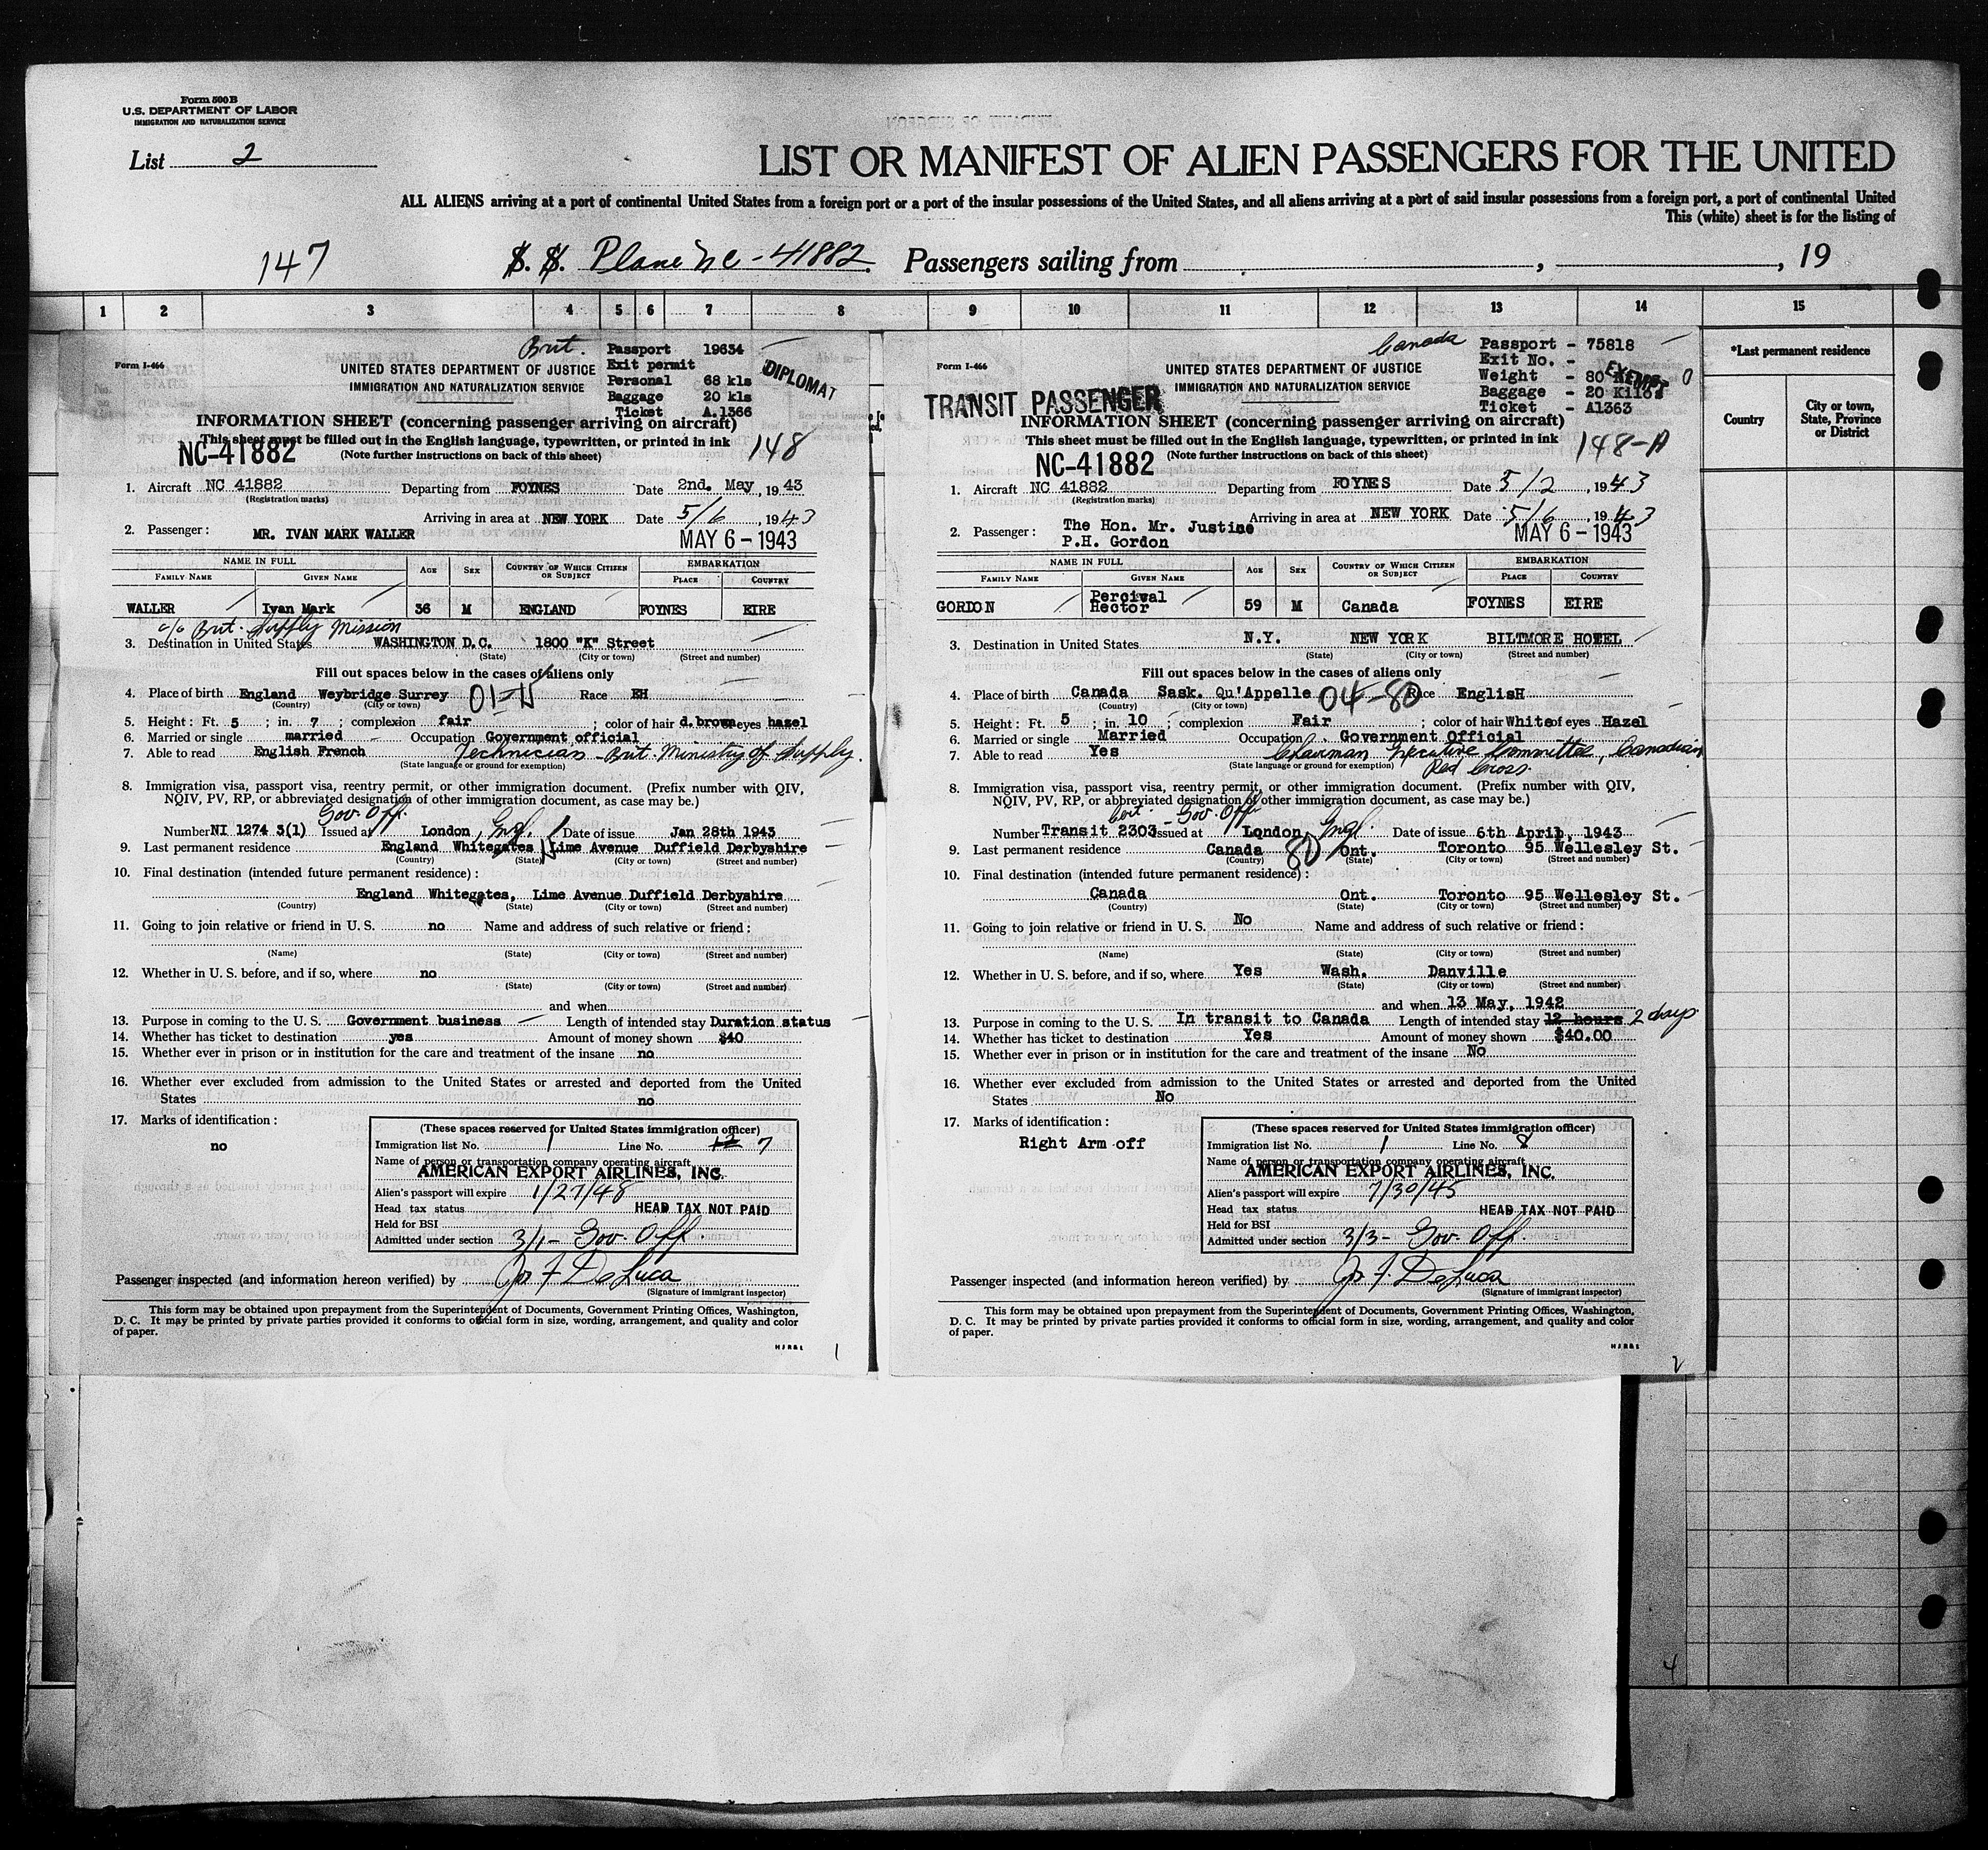 Form 500 B
U.S. DEPARTMENT OF LABOR
IMMIGRATION AND NATURALIZATION SERVICE
List 2
LIST OR MANIFEST OF ALIEN PASSENGERS FOR THE UNITED
ALL ALIENS arriving at a port of continental United States from a foreign port or a port of the insular possessions of the United States, and all aliens arriving at a port of said insular possessions from a foreign port, a port of continental United
This (white) sheet is for the listing of
147 S. S. Plane NC-41882 Passengers sailing from , , 19
1 2 3 4 5 6 7 8 9 10 11 12 13 14 15
*Last permanent residence
Country City or town, State, Province or District
Form I-466
Brit.
Passport 19634
Exit permit
Personal 68 kls
Baggage 20 kls
Ticket A.1366
DIPLOMAT
UNITED STATES DEPARTMENT OF JUSTICE
IMMIGRATION AND NATURALIZATION SERVICE
INFORMATION SHEET (concerning passenger arriving on aircraft)
This sheet must be filled out in the English language, typewritten, or printed in ink
NC-41882 (Note further instructions on back of this sheet) 148
1. Aircraft NC 41882 Departing from FOYNES Date 2nd. May, 1943
(Registration marks)
Arriving in area at NEW YORK Date 5/6, 1943
2. Passenger: MR. IVAN MARK WALLER MAY 6 - 1943
NAME IN FULL AGE SEX COUNTRY OF WHICH CITIZEN OR SUBJECT EMBARKATION
FAMILY NAME GIVEN NAME PLACE COUNTRY
WALLER Ivan Mark 36 M ENGLAND FOYNES EIRE
c/o Brit. Supply Mission
3. Destination in United States WASHINGTON D.C. 1800 "K" Street
(State) (City or town) (Street and number)
Fill out spaces below in the cases of aliens only
4. Place of birth England Weybridge Surrey Race EH
(Country) (City or town)
5. Height: Ft. 5; in. 7; complexion fair; color of hair d.brown eyes hazel
6. Married or single married Occupation Government official
7. Able to read English French Technician - Brit. Ministry of Supply.
(State language or ground for exemption)
8. Immigration visa, passport visa, reentry permit, or other immigration document. (Prefix number with QIV,
NQIV, PV, RP, or abbreviated designation of other immigration document, as case may be.)
Gov. Off.
Number NI 1274 3(1) Issued at London, Engl. Date of issue Jan 28th 1943
9. Last permanent residence England Whitegates Lime Avenue Duffield Derbyshire
(Country) (State) (City or town) (Street and number)
10. Final destination (intended future permanent residence):
England Whitegates, Lime Avenue Duffield Derbyshire
(Country) (State) (City or town) (Street and number)
11. Going to join relative or friend in U. S. no Name and address of such relative or friend:
(Name) (State) (City or town) (Street and number)
12. Whether in U. S. before, and if so, where no
(State) (City or town) (Street and number)
and when
13. Purpose in coming to the U. S. Government business Length of intended stay Duration status
14. Whether has ticket to destination yes Amount of money shown $40
15. Whether ever in prison or in institution for the care and treatment of the insane no
16. Whether ever excluded from admission to the United States or arrested and deported from the United
States no
17. Marks of identification:
no
(These spaces reserved for United States immigration officer)
Immigration list No. 1 Line No. 12 7
Name of person or transportation company operating aircraft
AMERICAN EXPORT AIRLINES, INC.
Alien's passport will expire 1/27/48
Head tax status HEAD TAX NOT PAID
Held for BSI
Admitted under section 3/1 - Gov. Off.
Passenger inspected (and information hereon verified) by Jos F. De Luca
(Signature of immigrant inspector)
This form may be obtained upon prepayment from the Superintendent of Documents, Government Printing Offices, Washington,
D. C. It may be printed by private parties provided it conforms to official form in size, wording, arrangement, and quality and color
of paper.
1
Form I-466
Canada
Passport - 75818
Exit No. -
Weight - 80 Kilos
Baggage - 20 Kilos
Ticket - A1363
EXEMPT
UNITED STATES DEPARTMENT OF JUSTICE
IMMIGRATION AND NATURALIZATION SERVICE
TRANSIT PASSENGER
INFORMATION SHEET (concerning passenger arriving on aircraft)
This sheet must be filled out in the English language, typewritten, or printed in ink
NC-41882 (Note further instructions on back of this sheet) 148-A
1. Aircraft NC 41882 Departing from FOYNES Date 5/2, 1943
(Registration marks)
Arriving in area at NEW YORK Date 5/6, 1943
2. Passenger: The Hon. Mr. Justice
P.H. Gordon MAY 6 - 1943
NAME IN FULL AGE SEX COUNTRY OF WHICH CITIZEN OR SUBJECT EMBARKATION
FAMILY NAME GIVEN NAME PLACE COUNTRY
GORDON Percival Hector 59 M Canada FOYNES EIRE
3. Destination in United States N.Y. NEW YORK BILTMORE HOTEL
(State) (City or town) (Street and number)
Fill out spaces below in the cases of aliens only
4. Place of birth Canada Sask. Qu'Appelle 04-80 Race EnglisH
(Country) (City or town)
5. Height: Ft. 5; in. 10; complexion Fair; color of hair White of eyes Hazel
6. Married or single Married Occupation Government Official
7. Able to read Yes Chairman Executive Committee, Canadian
(State language or ground for exemption) Red Cross
8. Immigration visa, passport visa, reentry permit, or other immigration document. (Prefix number with QIV,
NQIV, PV, RP, or abbreviated designation of other immigration document, as case may be.)
Gov. Off.
Number Transit 2303 Issued at London, Engl. Date of issue 6th April, 1943
9. Last permanent residence Canada 80 Ont. Toronto 95 Wellesley St.
(Country) (State) (City or town) (Street and number)
10. Final destination (intended future permanent residence):
Canada Ont. Toronto 95 Wellesley St.
(Country) (State) (City or town) (Street and number)
11. Going to join relative or friend in U. S. No Name and address of such relative or friend:
(Name) (State) (City or town) (Street and number)
12. Whether in U. S. before, and if so, where Yes Wash. Danville
(State) (City or town) (Street and number)
and when 13 May, 1942
13. Purpose in coming to the U. S. In transit to Canada Length of intended stay 12 hours 2 days
14. Whether has ticket to destination Yes Amount of money shown $40.00
15. Whether ever in prison or in institution for the care and treatment of the insane No
16. Whether ever excluded from admission to the United States or arrested and deported from the United
States No
17. Marks of identification:
Right Arm off
(These spaces reserved for United States immigration officer)
Immigration list No. 1 Line No. 8
Name of person or transportation company operating aircraft
AMERICAN EXPORT AIRLINES, INC.
Alien's passport will expire 7/30/45
Head tax status HEAD TAX NOT PAID
Held for BSI
Admitted under section 3/3 - Gov. Off.
Passenger inspected (and information hereon verified) by Jos F. De Luca
(Signature of immigrant inspector)
This form may be obtained upon prepayment from the Superintendent of Documents, Government Printing Offices, Washington,
D. C. It may be printed by private parties provided it conforms to official form in size, wording, arrangement, and quality and color
of paper.
2
4